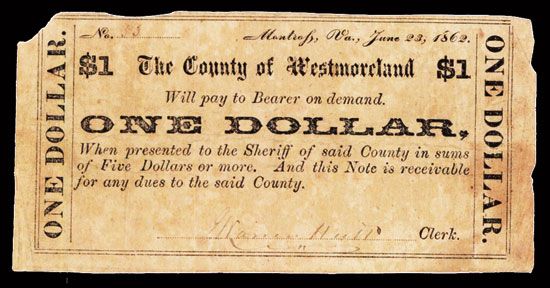 No. 33
Montross, Va., June 23, 1862.
$1 The County of Westmoreland $1
Will pay to Bearer on demand.
ONE DOLLAR,
When presented to the Sheriff of said County in sums
of Five Dollars or more. And this Note is receivable
for any dues to the said County.
Clerk.
ONE DOLLAR.
ONE DOLLAR.